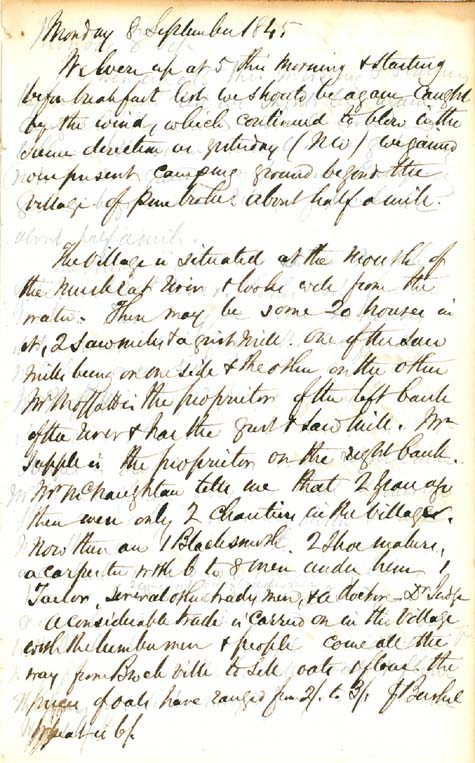 Monday 8 September 1845
We were up at 5 this morning & starting
before breakfast lest we should be again caught
by the wind, which continued to blow in the
same direction as yesterday (NW) we gained
our present camping ground beyond the
village of Pembroke about half a mile.
The Village is situated at the Mouth of
the Muskrat River & looks well from the
water. There may be some 20 houses in
it, 2 Sawmills & a grist Mill. One of the Saw
Mills being on one side & the other on the other
Mr Moffatt is the proprietor of the left bank
of the River & has the grist & Saw Mill. Mr
Supple is the proprietor on the right bank.
Mr McNaughtan tells me that 2 years ago
there were only 2 Chanties in the Village.
Now there are 1 Blacksmith. 2 Shoe makers,
a carpenter with 6 to 8 men under him, 1
Tailor, several other tradesmen, & a doctor - Dr
A considerable trade is carried on in the Village
with the lumbermen & people come all the
way from Brockville to sell oats & flour the
prices of oats have ranged from 2/. to 3/. Bushel
wheat is 6/.